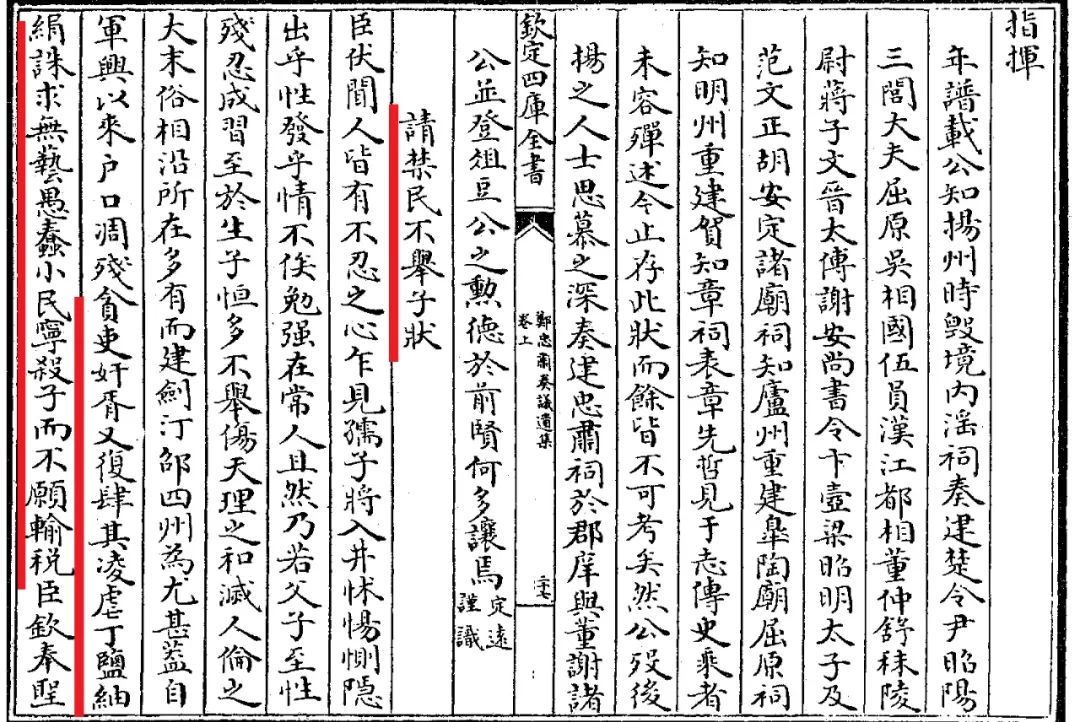 指揮
年譜載公知揚州時毀境内淫祠奏建楚令尹昭陽
三閭大夫屈原吳相國伍員漢江都相董仲舒秣陵
尉蔣子文晉太傅謝安尚書令卞壺梁昭明太子及
范文正胡安定諸廟祠知廬州重建臯陶廟屈原祠
知明州重建賀知章祠表章先哲見于志傳史乘者
未容殫述今止存此狀而餘皆不可考矣然公歿後
揚之人士思慕之深奏建忠肅祠於郡庠與董謝諸
欽定四庫全書
鄭忠肅奏議遺集
卷上
二十七
公並登俎豆公之勲德於前賢何多讓焉
定遠
謹識
請禁民不舉子狀
臣伏聞人皆有不忍之心乍見孺子將入井怵惕惻隱
出乎性發乎情不俟勉强在常人且然乃若父子至性
殘忍成習至於生子恒多不舉傷天理之和滅人倫之
大末俗相沿所在多有而建劍汀邵四州為尤甚蓋自
軍興以來户口凋殘貪吏奸胥又復肆其凌虐丁鹽紬
絹誅求無藝愚蠢小民寧殺子而不願輸税臣欽奉聖